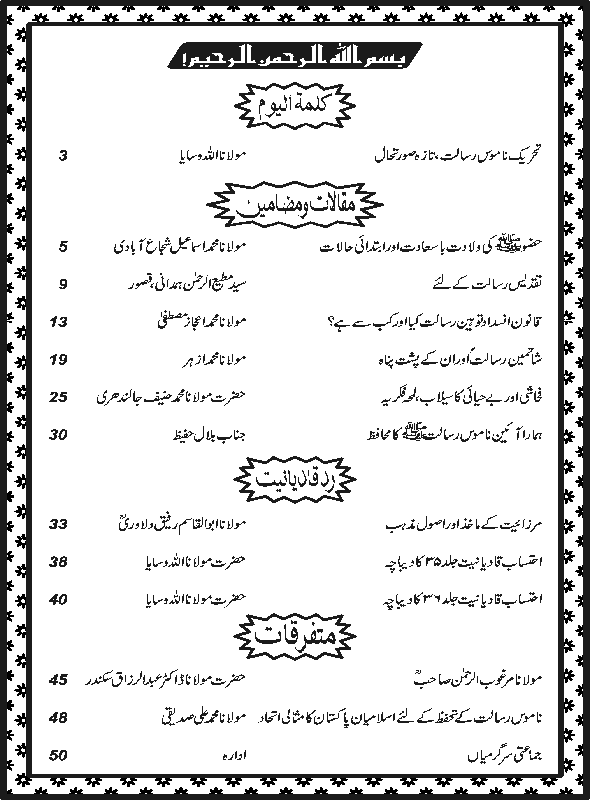 بسم الله الرحمن الرحیم!
کلمة الیوم
تحریک ناموس رسالت، تازہ صورتحال مولانا اللہ وسایا 3
مقالات و مضامین
حضور ﷺ کی ولادت باسعادت اور ابتدائی حالات مولانا محمد اسماعیل شجاع آبادی 5
تقدیس رسالت کے لئے سید مطیع الرحمٰن ہمدانی، قصور 9
قانون انسداد توہین رسالت کیا اور کب سے ہے؟ مولانا محمد اعجاز مصطفیٰ 13
شاتمین رسالت اور ان کے پشت پناہ مولانا محمد ازہر 19
فحاشی اور بے حیائی کا سیلاب، لمحہ فکریہ حضرت مولانا محمد حنیف جالندھری 25
ہمارا آئین ناموس رسالت ﷺ کا محافظ جناب بلال حفیظ 30
رد قادیانیت
مرزائیت کے ماخذ اور اصول مذہب مولانا ابوالقاسم رفیق دلاوریؒ 33
احتساب قادیانیت جلد ۳۵ کا دیباچہ حضرت مولانا اللہ وسایا 38
احتساب قادیانیت جلد ۳۶ کا دیباچہ حضرت مولانا اللہ وسایا 40
متفرقات
مولانا مرغوب الرحمٰن صاحبؒ حضرت مولانا ڈاکٹر عبدالرزاق سکندر 45
ناموس رسالت کے تحفظ کے لئے اسلامیان پاکستان کا مثالی اتحاد مولانا محمد علی صدیقی 48
جماعتی سرگرمیاں ادارہ 50